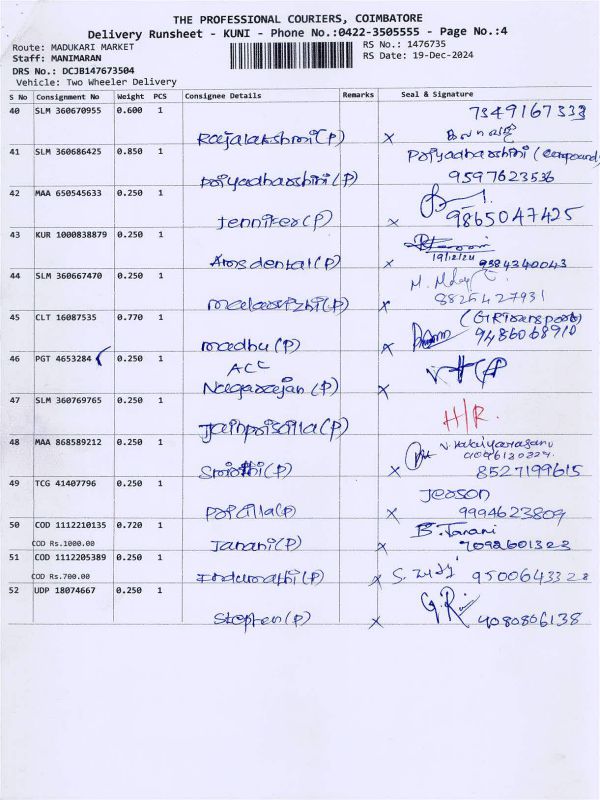 THE PROFESSIONAL COURIERS, COIMBATORE
Delivery Runsheet - KUNI - Phone No.:0422-3505555 - Page No.:4
Route: MADUKARI MARKET
RS No.: 1476735
Staff: MANIMARAN
RS Date: 19-Dec-2024
DRS No.: DCJB147673504
Vehicle: Two Wheeler Delivery
S No Consignment No Weight PCS Consignee Details Remarks Seal & Signature
40 SLM 360670955 0.600 1 7349167333
Rajalakshmi(P) x
41 SLM 360686425 0.850 1 Priyadharshini (Compound)
Priyadharshini (P) 9597623536
42 MAA 650545633 0.250 1
Jenniker(P) x 9865047425
43 KUR 1000838879 0.250 1
19/12/24
Ams dental(P) x 9384340043
44 SLM 360667470 0.250 1
Malarvizhi(P) x 8825427931
45 CLT 16087535 0.770 1 (G Transport)
madhu(P) x 9486068910
46 PGT 4653284 0.250 1
ACC
Nagarajan(P) x
47 SLM 360769765 0.250 1 H/R.
Jainprisilla(P)
48 MAA 868589212 0.250 1
Srinthi(P) x 8527199615
49 TCG 41407796 0.250 1 Jerson
Pricilla(P) x 9994623809
50 COD 1112210135 0.720 1 B. Janani
COD Rs.1000.00
Janani(P) x 7092601323
51 COD 1112205389 0.250 1
COD Rs.700.00 Indumathi(P) x S. 9500643328
52 UDP 18074667 0.250 1
Stephen(P) x 9080806138